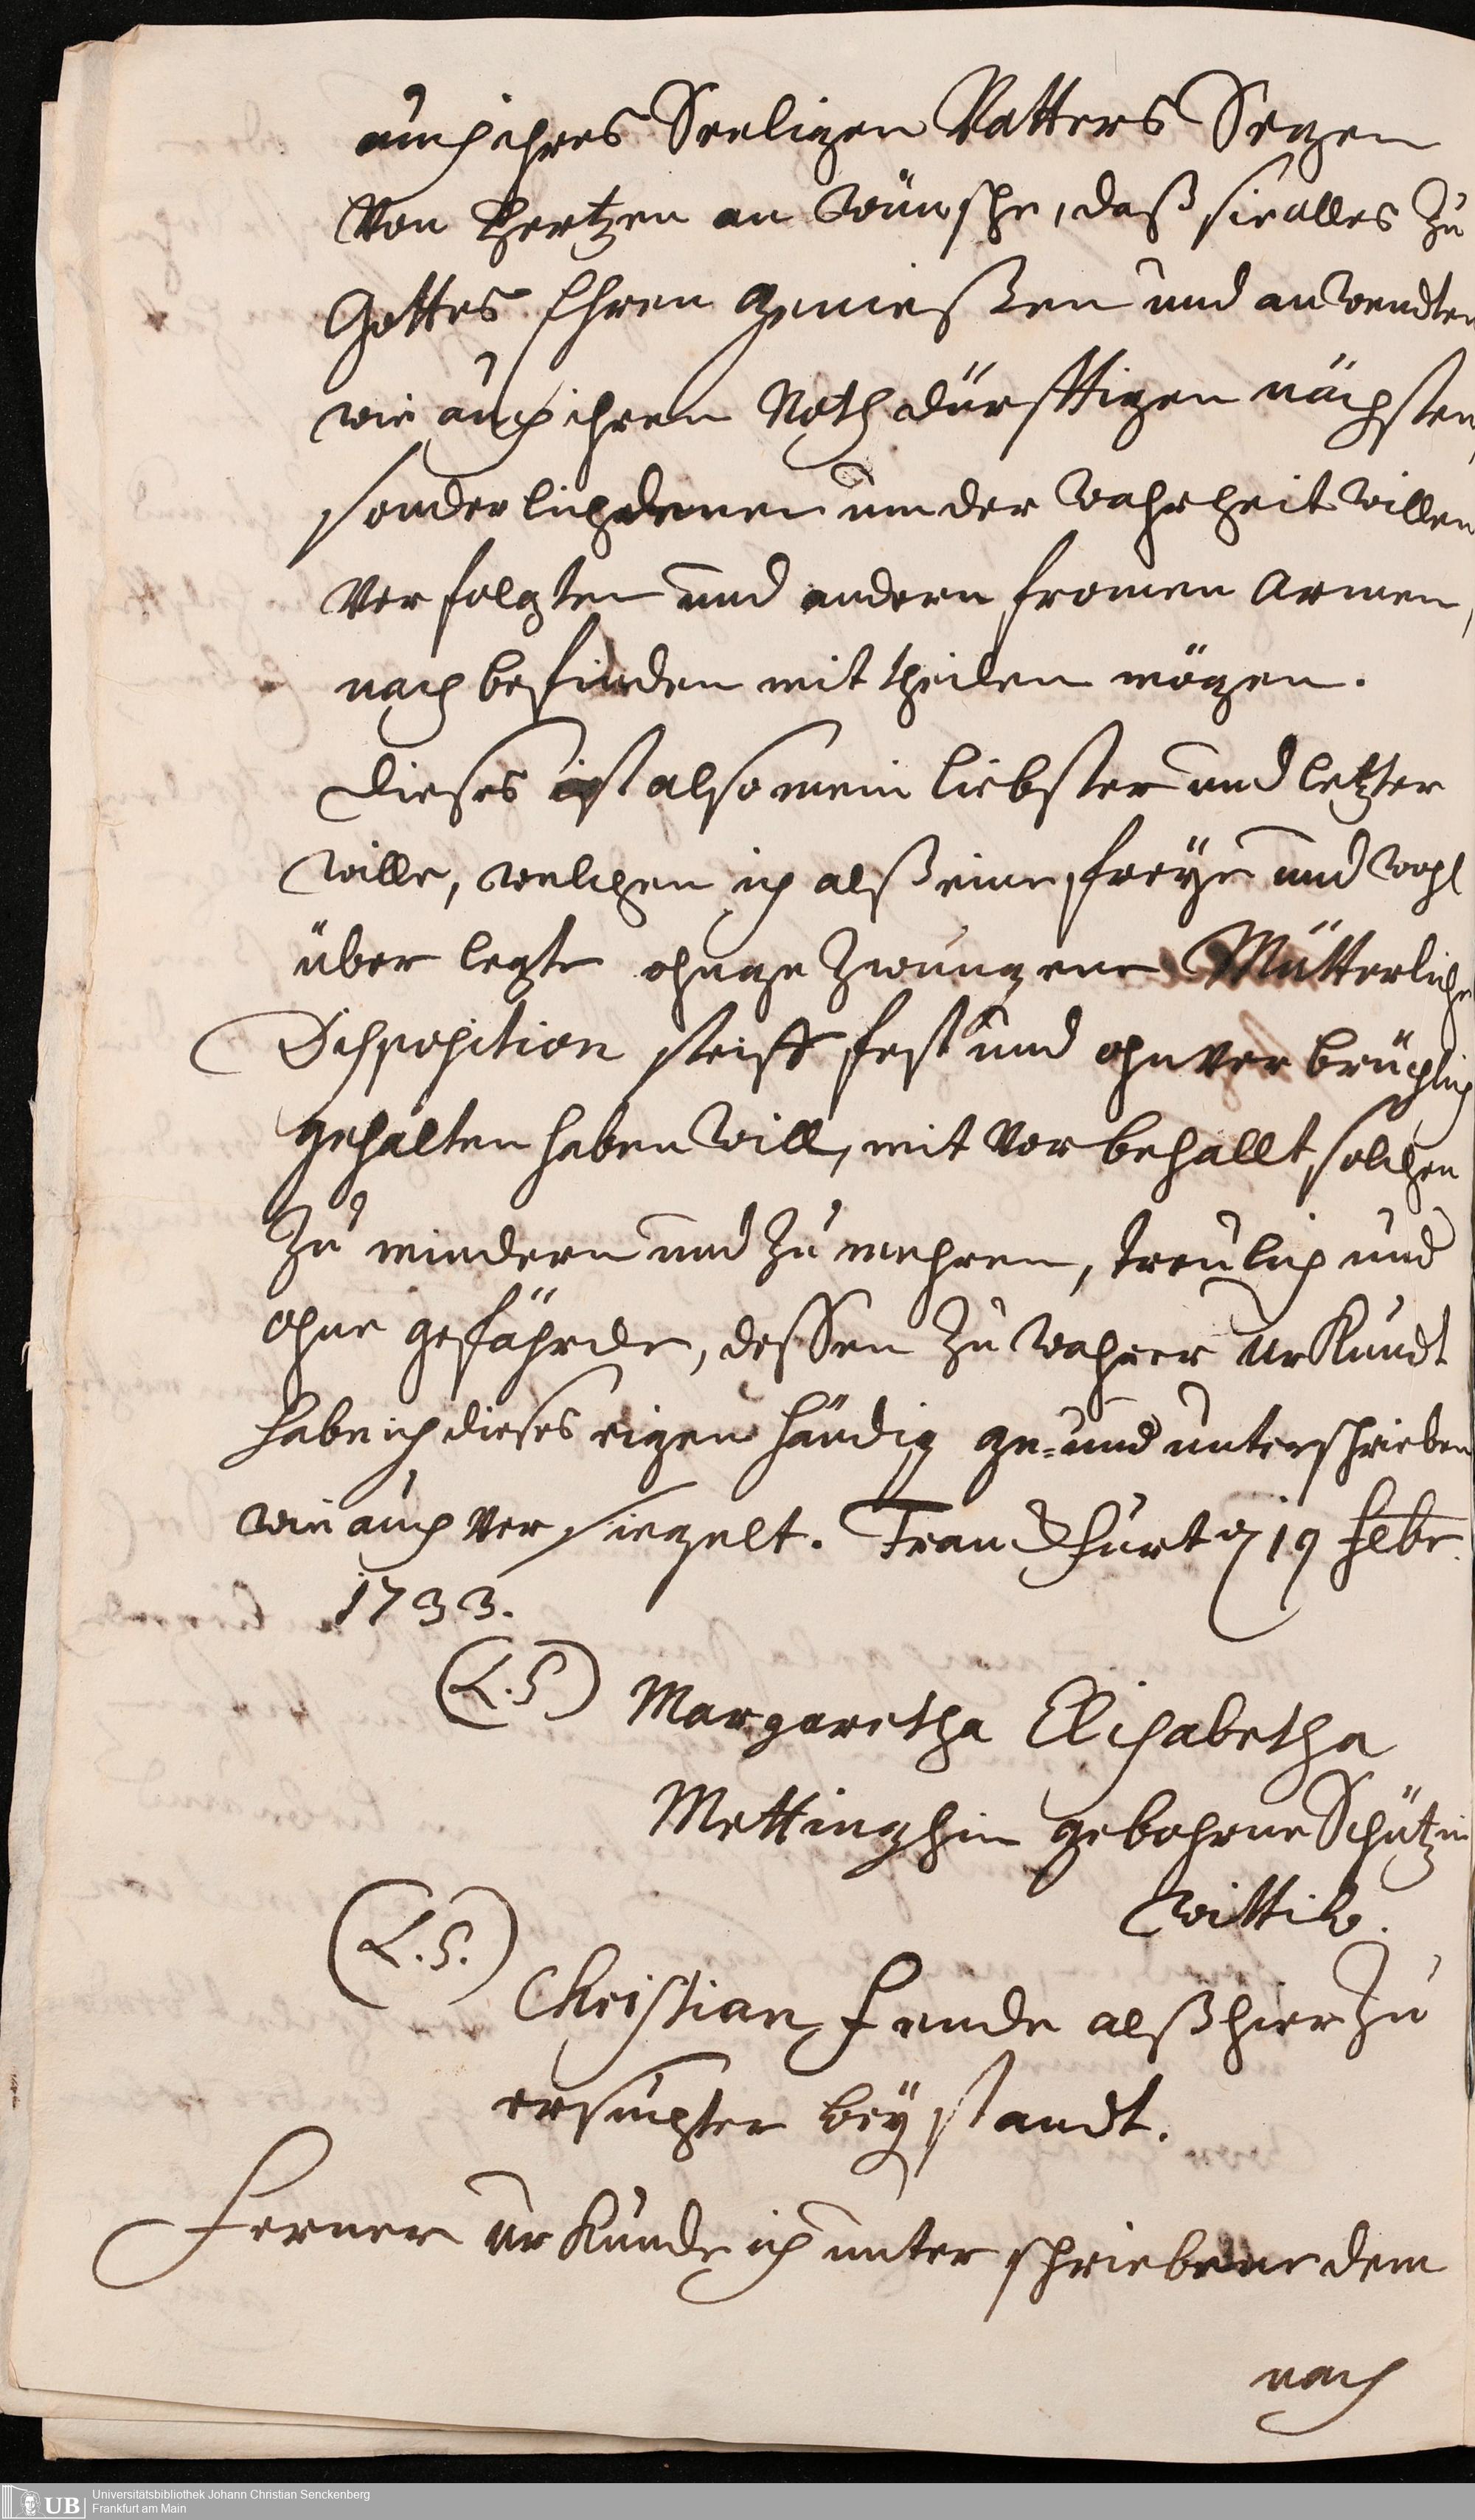 auch ihres Seeligen Vatters Segen
Von Hertzen an Wünsche, daß sie alles Zu
Gottes Ehren genießen und anwendten
wie auch ihrem Nothdürfftigen nächsten,
sonderlich denen um der Wahrheit Willen
Verfolgten und andern fromen Armen,
nach befinden mit theilen mögen.
Dieses ist also mein liebster und letzter
Wille, welchen ich alß eine freye und Wohl
über legte ohngezwungene Mütterliche
Disposition steiff fest und ohnverbrüchlich
gehalten haben Will, mit Vorbehallt, solchen
Zu mindern und Zu mehren, treulich und
ohne gefährde, dessen Zu Wahrer UrKundt
habe ich dieses eigenhändig ge- und unterschrieben
wie auch Versiegelt. Franckfurt d 19 Febr.
1733.
(L.S) Margaretha Elisabetha
Mettinghin gebohrne Schützin
Wittib.
(L.S.)
Christian Fende alß hierZu
ersuchter beystandt.
Ferner UrKunde ich unterschriebene dem
nach
Universitätsbibliothek Johann Christian Senckenberg
UB
Frankfurt am Main